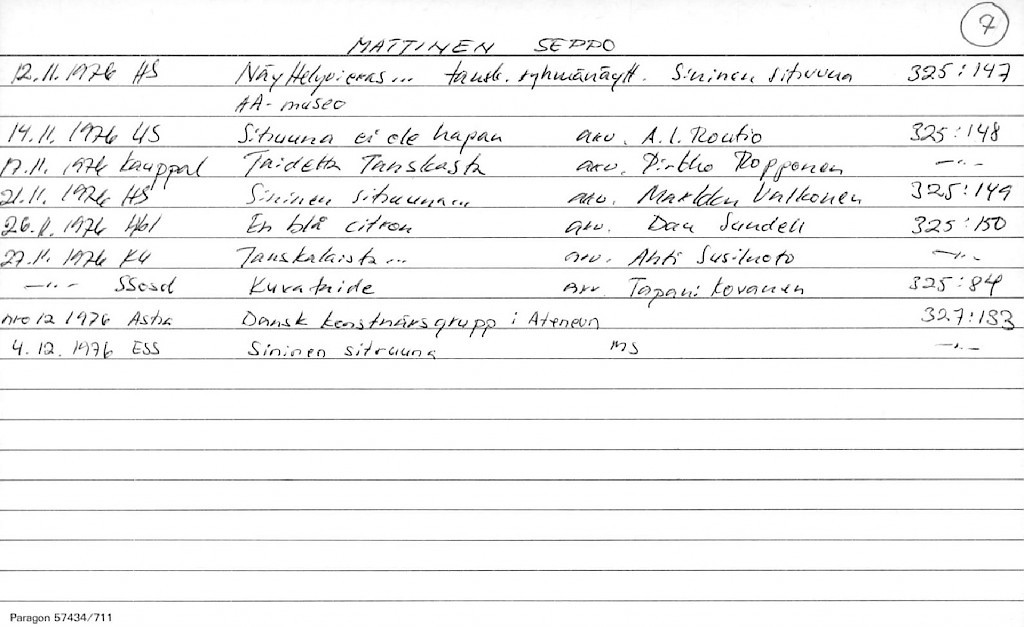 7
MATTINEN SEPPO
12.11.1976 HS Näyttelyvieras... tansk. ryhmänäytt. Sininen sitruuna 325:147
AA-museo
14.11.1976 US Sitruuna ei ole hapan arv. A.I. Routio 325:148
17.11.1976 Kauppal Taidetta Tanskasta arv. Pirkko Ropponen —"—
21.11.1976 HS Sininen sitruuna... arv. Markku Valkonen 325:149
26.11.1976 Hbl En blå citron arv. Dan Sundell 325:150
27.11.1976 KU Tanskalaista... arv. Ahti Susiluoto —"—
—"— SSosd Kuvataide arv. Tapani Kovanen 325:84
nro 12 1976 Astra Dansk konstnärsgrupp i Ateneum 327:183
4.12.1976 ESS Sininen sitruuna MS —"—
Paragon 57434/711